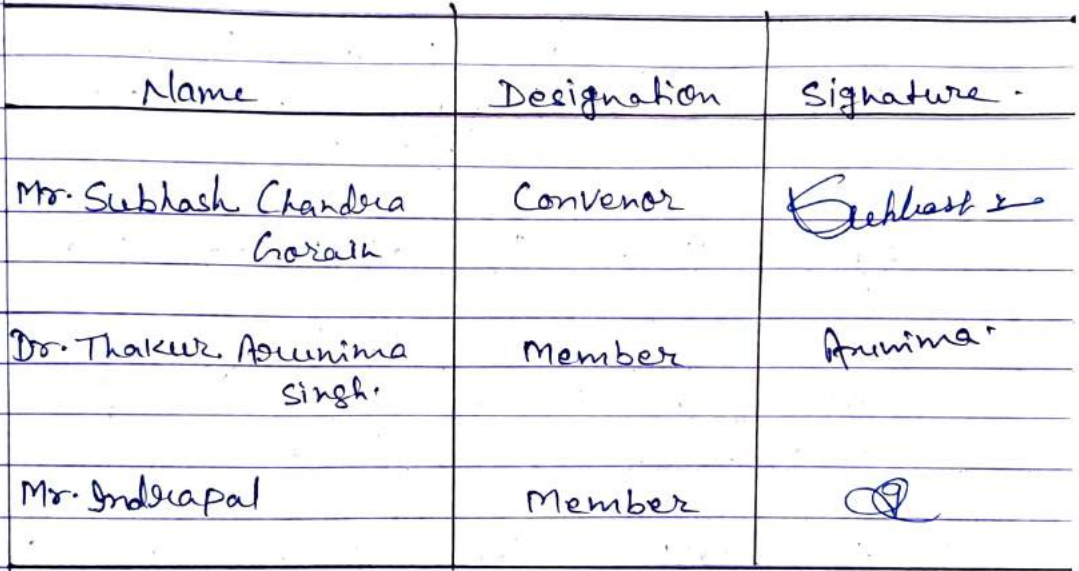 Name Designation Signature.
Mr. Subhash Chandra Convenor Subhash
Gorain
Dr. Thakur Arunima Member Arunima
Singh.
Mr. Indrapal Member